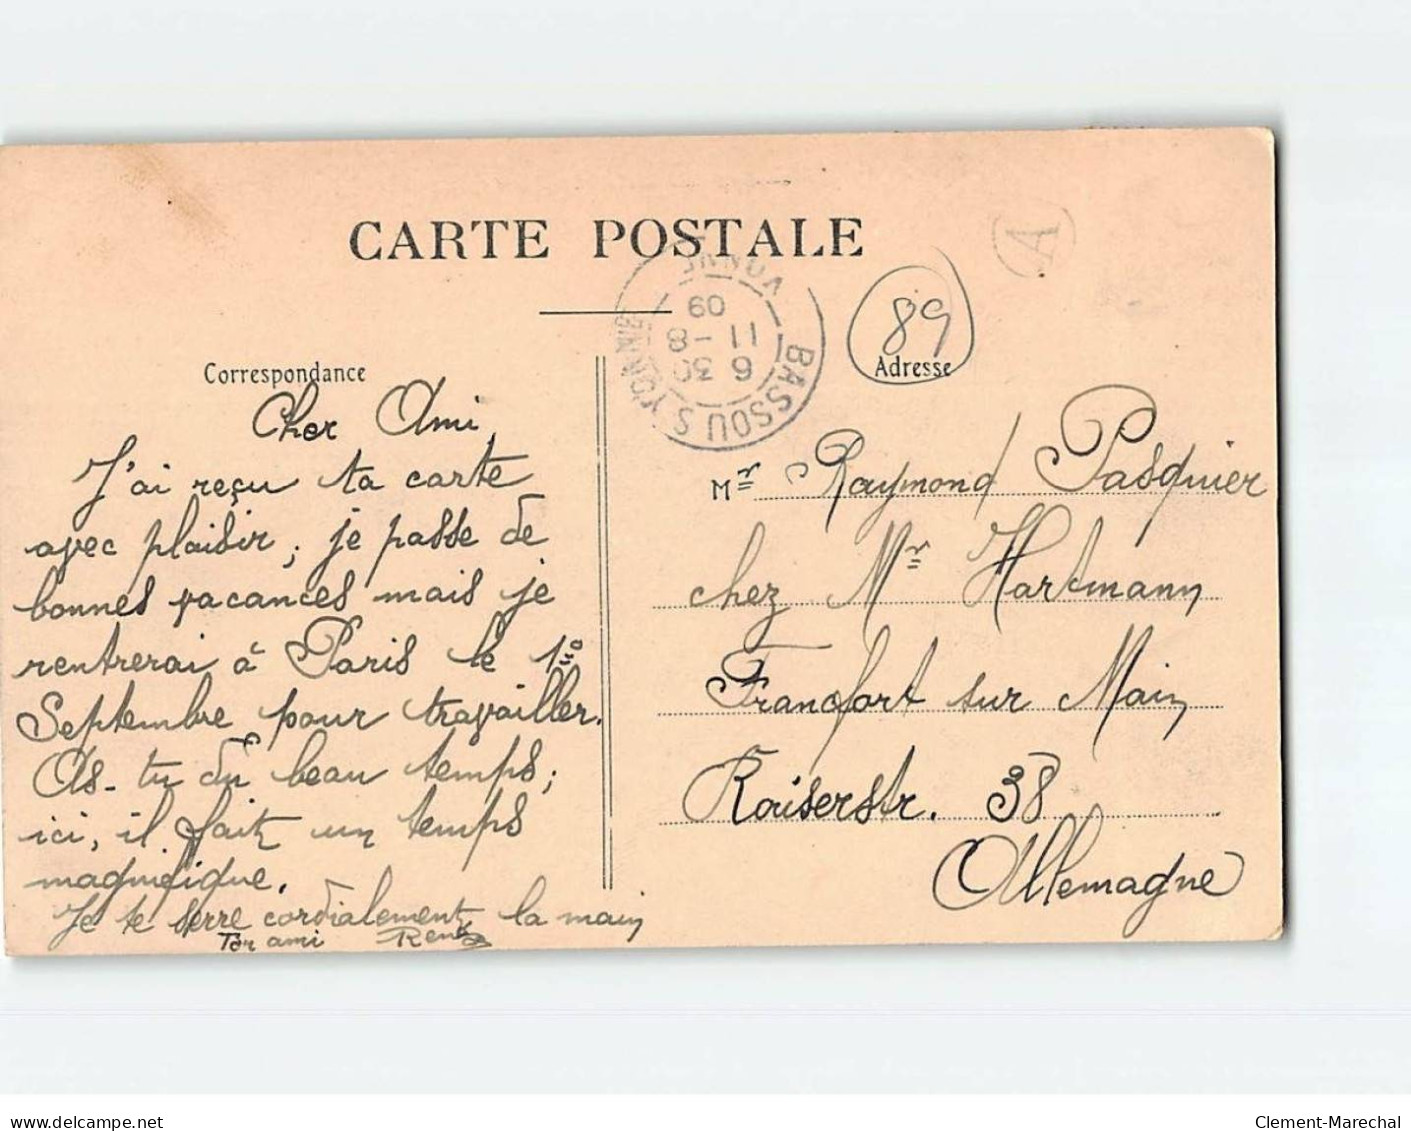 CARTE POSTALE
BASSOU S YONNE
YONNE
6 30
11 - 8
09
A
89
Correspondance
Adresse
Cher Ami,
J'ai reçu ta carte
avec plaisir, je passe de
bonnes vacances mais je
rentrerai à Paris le 1er
Septembre pour travailler.
As-tu du beau temps;
ici, il fait un temps
magnifique.
Je te serre cordialement la main
Ton ami René
Mr Raymond Pasquier
chez Mr Hartmann
Francfort sur Main
Kaiserstr. 38
Allemagne
www.delcampe.net
Clement-Marechal